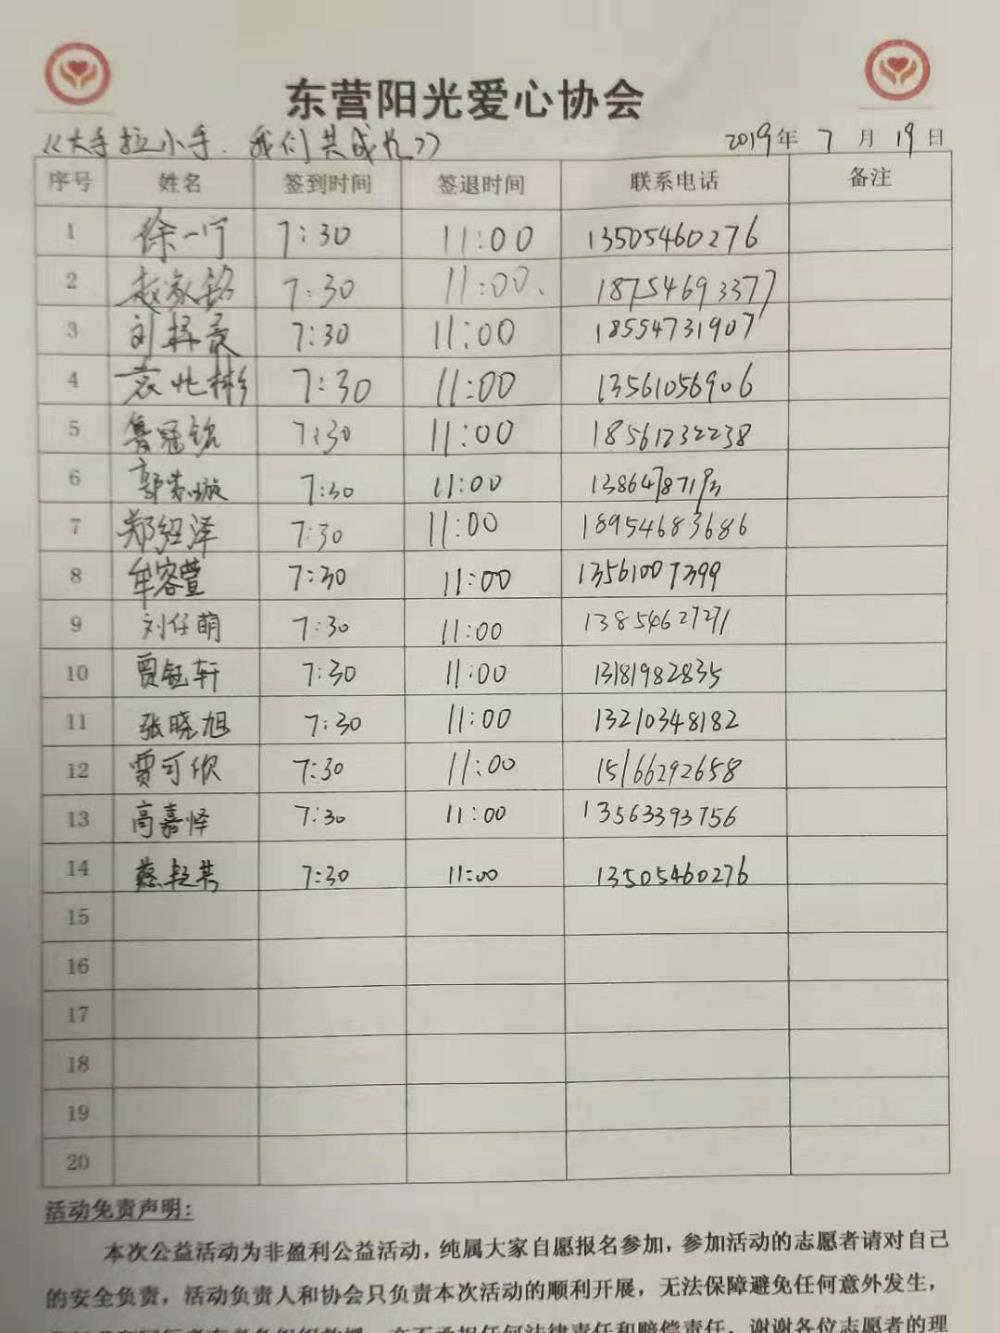 东营阳光爱心协会
《大手拉小手.我们共成长》 2019年7月19日
序号 姓名 签到时间 签退时间 联系电话 备注
1 徐一宁 7:30 11:00 13505460276
2 赵家铭 7:30 11:00、 18754693377
3 刘 7:30 11:00 18554731907
4 袁兆彬 7:30 11:00 13561056906
5 鲁冠铭 7:30 11:00 18561232238
6 郭 璇 7:30 11:00
7 郑绍泽 7:30 11:00 18954683686
8 牟容萱 7:30 11:00 13561007399
9 刘仔萌 7:30 11:00 13854627271
10 贾钰轩 7:30 11:00 13181982835
11 张晓旭 7:30 11:00 13210348182
12 贾可欣 7:30 11:00 15166292658
13 高嘉怿 7:30 11:00 13563393756
14 7:30 11:00 13505460276
15
16
17
18
19
20
活动免责声明:
本次公益活动为非盈利公益活动，纯属大家自愿报名参加，参加活动的志愿者请对自己
的安全负责，活动负责人和协会只负责本次活动的顺利开展，无法保障避免任何意外发生，
亦不承担任何法律责任和赔偿责任。谢谢各位志愿者的理